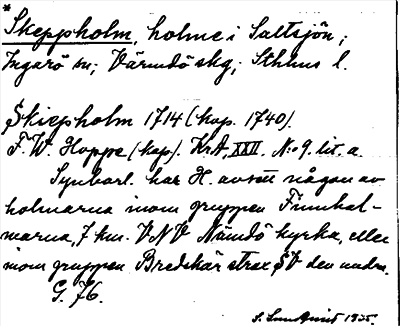 *
Skeppsholm, holme i Saltsjön;
Ingarö sn; Värmdö skg; Sthlms l.
Skiepholm 1714 (kop. 1740).
F. W. Hoppe (kop). KrA, XXII. N:o 9. lit. a.
Synbarl. har H. avsett någon av
holmarna inom gruppen Finnhol-
marna, 7 km. VNV Nämdö kyrka, eller
inom gruppen Bredskär strax SV den andra.
G. 76.
S. Lundqvist 1935.